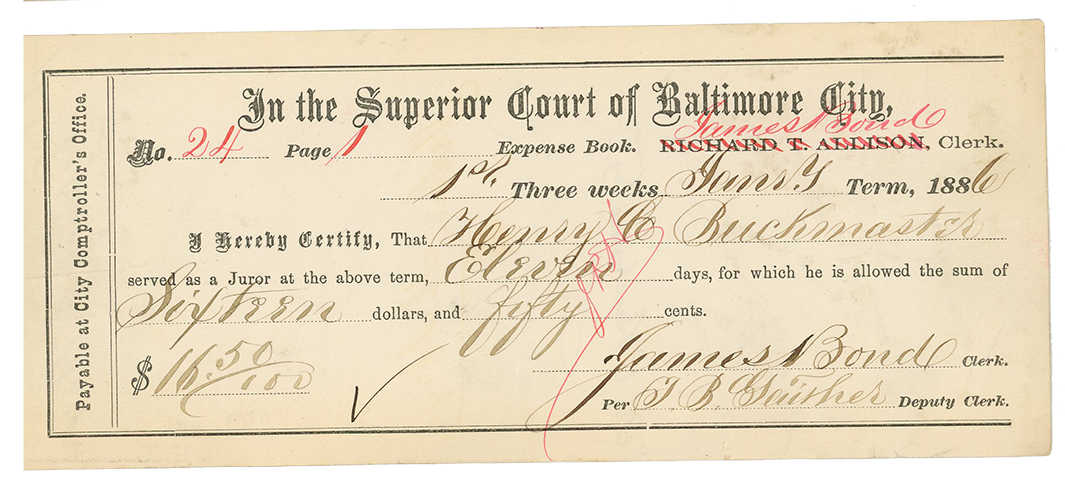 Payable at City Comptroller's Office.
In the Superior Court of Baltimore City,
James Bond
No. 24 Page 1 Expense Book. RICHARD T. ALLISON, Clerk.
1st Three weeks Jany Term, 1886
I Hereby Certify, That Henry C Buckmaster
served as a Juror at the above term, Eleven days, for which he is allowed the sum of
Sixteen dollars, and fifty cents.
$ 16.50/100
James Bond Clerk.
Per T B Gaither Deputy Clerk.